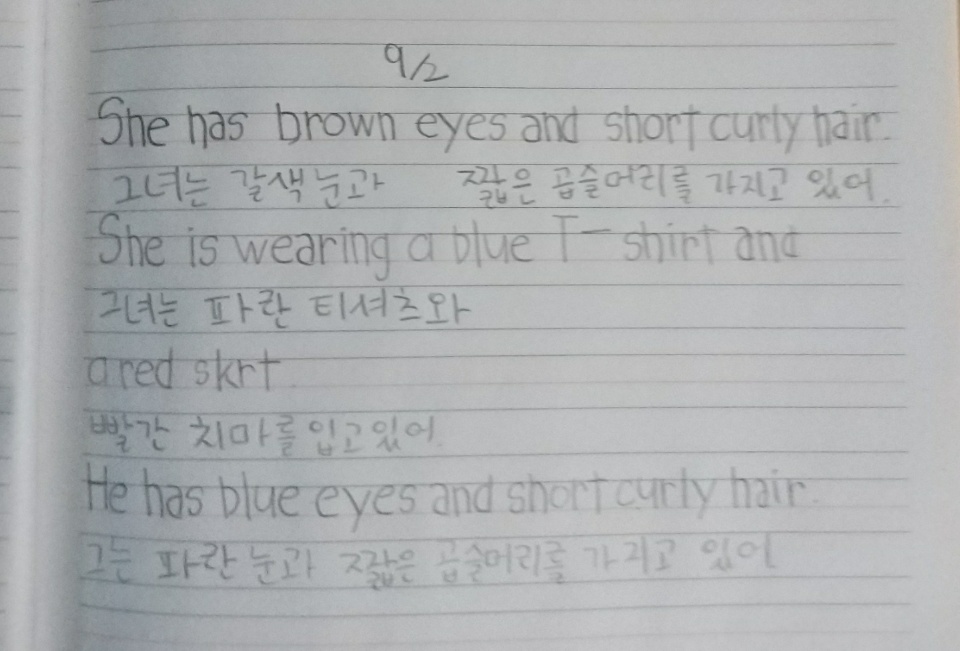 9/2
She has brown eyes and short curly hair.
그녀는 갈색 눈과 짧은 곱슬머리를 가지고 있어.
She is wearing a blue T-shirt and
그녀는 파란 티셔츠와
a red skrt
빨간 치마를 입고있어.
He has blue eyes and short curly hair.
그는 파란 눈과 짧은 곱슬머리를 가지고 있어